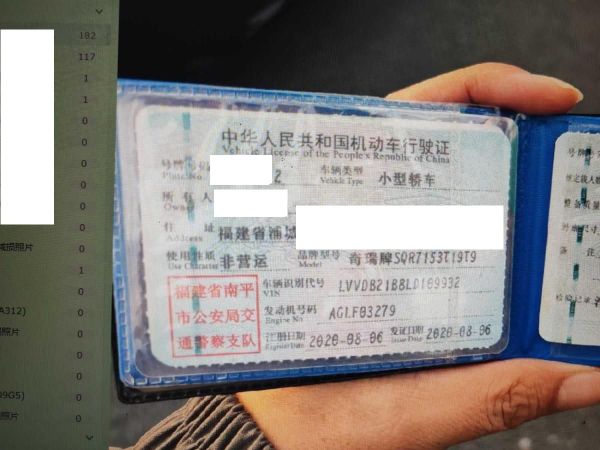 182
117
1
1
0
0
0
0
0
0
减损照片
1
0
A312)
照片
0
0
0
09G5)
照片
0
中华人民共和国机动车行驶证
Vehicle License of the People's Republic of China
号牌号码 2 车辆类型 小型轿车
Plate No. Vehicle Type
所有人
Owner
住址 福建省浦城
Address
使用性质 非营运 品牌型号 奇瑞牌SQR7153T19T9
Use Character Model
福建省南平
市公安局交
通警察支队
车辆识别代号 LVVDB21B8LD189932
VIN
发动机号码 AGLF03279
Engine No
注册日期 2020-08-06 发证日期 2020-08-06
Register Date Issue Date
号牌号
核定载人数
整备质量
外廓尺寸
备注
检验记录